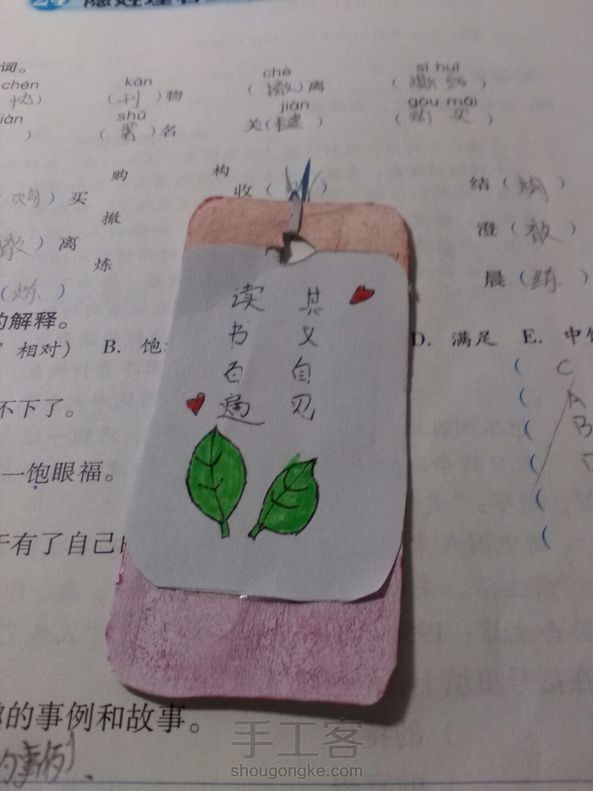 24 隐姓埋名
词。
chén kān chè sī huǐ
(忱) (刊)物 (撤)离 (撕毁)
jiàn
shǔ gòu mǎi
(署)名 关(键) (购买)
购 构
(购)买 收( ) 结(构)
撤 澄(澈)
(撤)离
炼 晨(练)
(炼)
的解释。
相对) B. 饱 D. 满足 E. 中饱
不下了。 ( C
( A
( B
一饱眼福。 (
(
于有了自己的 (
读书百遍
其义自见
的事例和故事。
的事例
手工客
shougongke.com